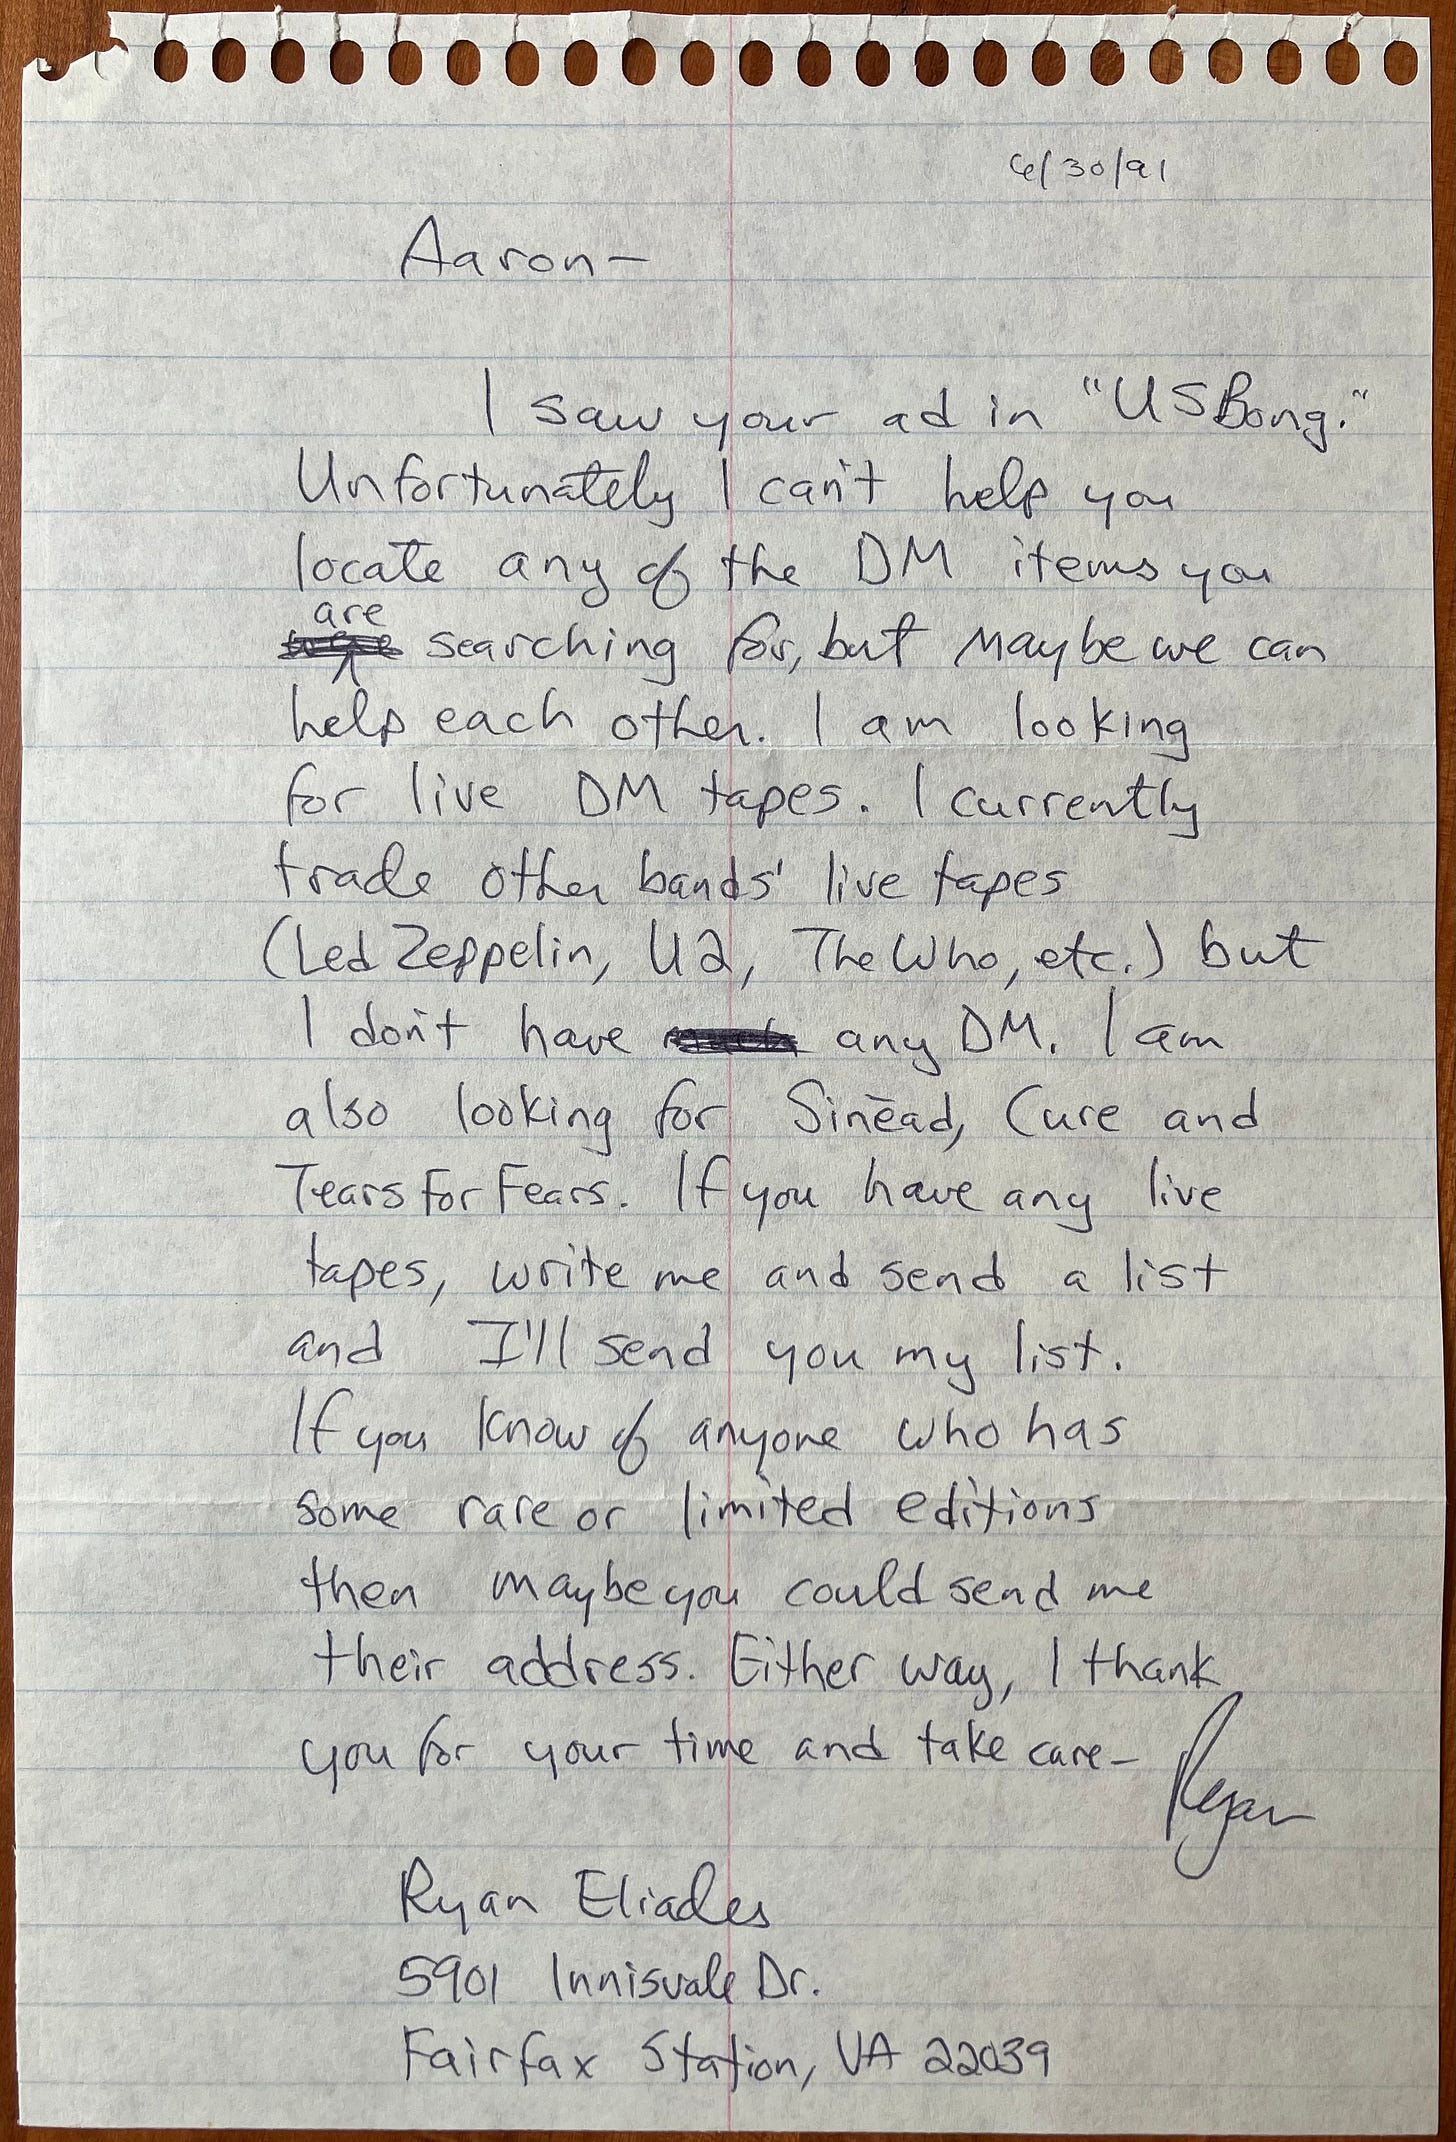 6/30/91
Aaron—
I saw your ad in "US Bong."
Unfortunately I can't help you
locate any of the DM items you
are
searching for, but maybe we can
help each other. I am looking
for live DM tapes. I currently
trade other bands' live tapes
(Led Zeppelin, U2, The Who, etc.) but
I don't have any DM. I am
also looking for Sinēad, Cure and
Tears For Fears. If you have any live
tapes, write me and send a list
and I'll send you my list.
If you know of anyone who has
some rare or limited editions
then maybe you could send me
their address. Either way, I thank
you for your time and take care—
Ryan
Ryan Eliades
5901 Innisvale Dr.
Fairfax Station, VA 22039